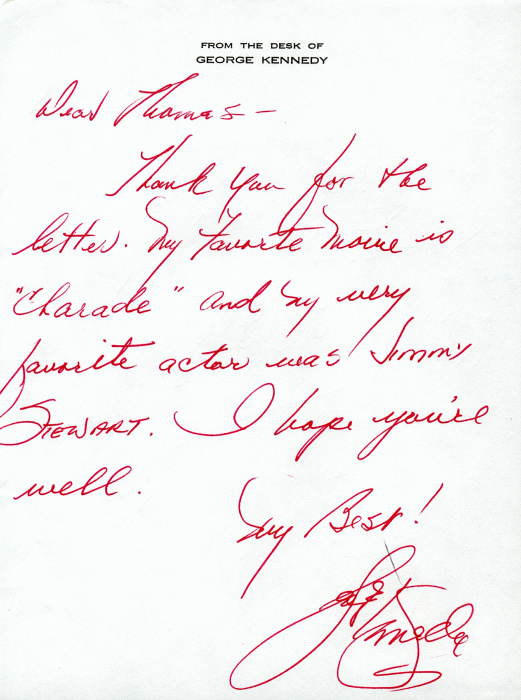 FROM THE DESK OF
GEORGE KENNEDY
Dear Thomas -
Thank you for the
letter. My favorite movie is
"Charade" and my very
favorite actor was Jimmy
STEWART. I hope you're
well.
My Best!
George Kennedy